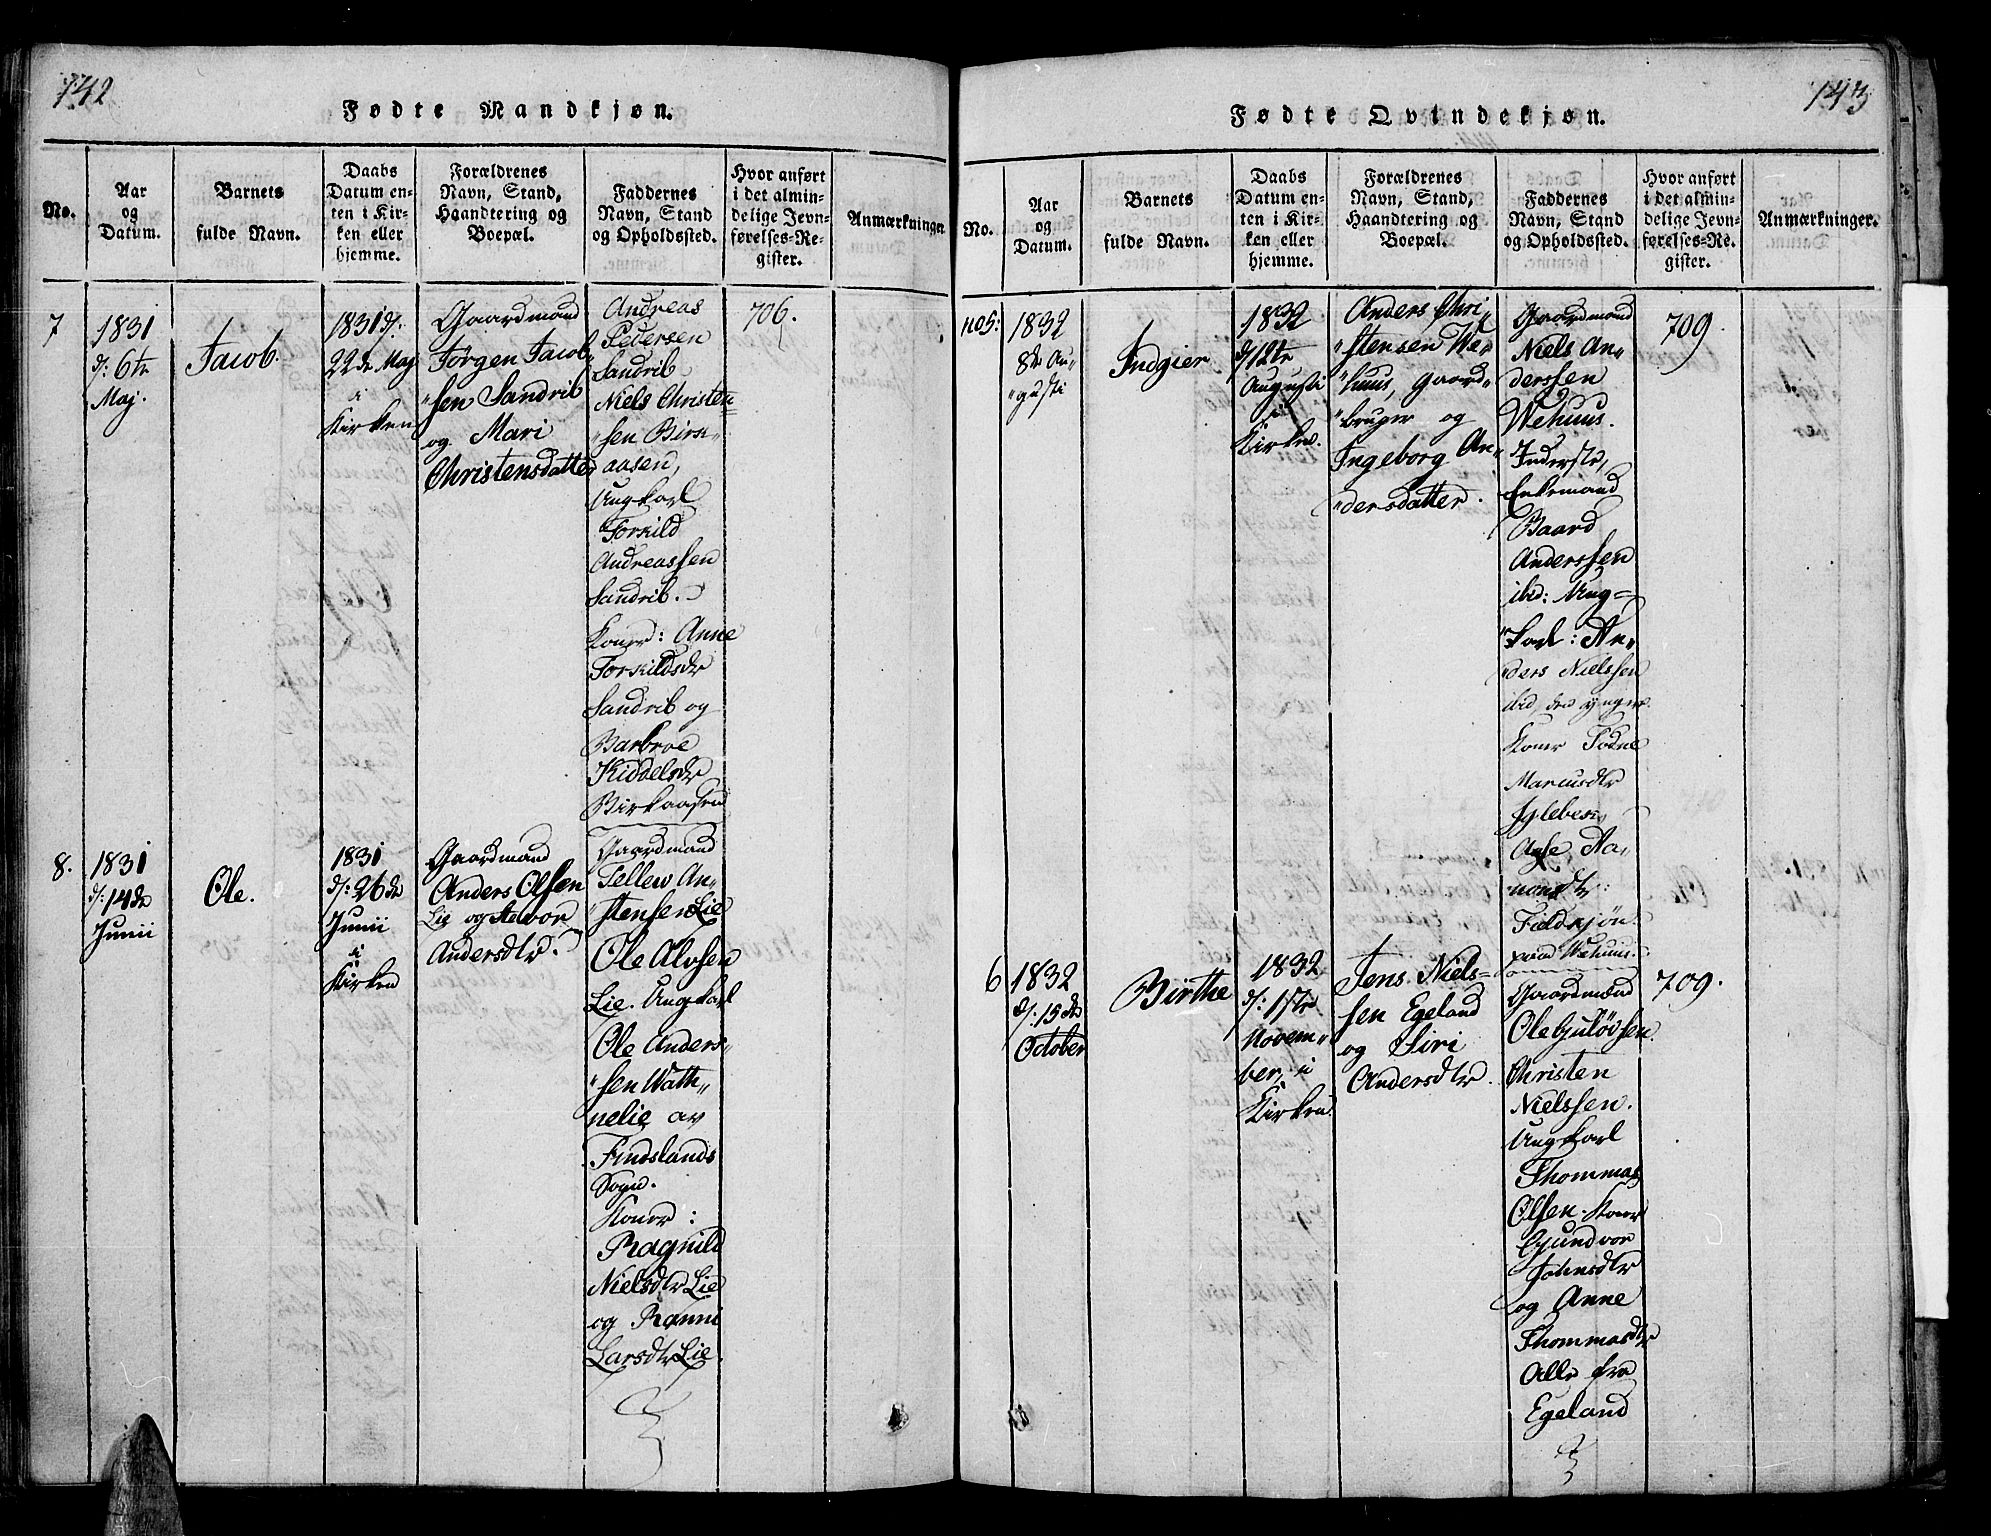 142
Fødte Mandkjøn.
No.
Aar
og
Datum.
Barnets
fulde Navn.
Daabs
Datum en-
ten i Kir-
ken eller
hjemme.
Forældrenes
Navn, Stand,
Haandtering og
Boepæl.
Faddernes
Navn, Stand
og Opholdssted.
Hvor anført
i det almin-
delige Jevn-
førelses-Re-
gister.
Anmærkninger.
7
1831
d: 6te
Maj.
Jacob.
1831 d:
22de Maj
i
Kirken
Gaardmand
Jørgen Jacob„
„sen Sandrib
og Mari
Christensdatter
Andreas
Pedersen
Sandrib
Niels Christen=
„sen Birk=
aasen,
Ungkarl
Torkild
Andreassen
Sandrib.
Koner: Anne
Torkildsdr
Sandrib og
Barbroe
Kiddelsdr
Birkaasen
706.
8.
1831
d: 14de
Junii
Ole.
1831
d: 26de
Junii
i
Kirken
Gaardmand
Anders Olsen
Lie og Stevor
Andersdtr.
Gaardmand
Tellew An„
„stensen Lie
Ole Alvsen
Lie. Ungkarl
Ole Anders„
„sen Wath„
nelie av
Findslands
Sogn.
Koner:
Ragnild
Nielsdtr Lie
og Ranni
Larsdtr Lie.
143
Fødte Qvindekjøn.
No.
Aar
og
Datum.
Barnets
fulde Navn.
Daabs
Datum en-
ten i Kir-
ken eller
hjemme.
Forældrenes
Navn, Stand,
Haandtering og
Boepæl.
Faddernes
Navn, Stand
og Opholdssted.
Hvor anført
i det almin-
delige Jevn-
førelses-Re-
gister.
Anmærkninger.
no 5:
1832
8de Au„
„gusti
Indgier
1832
d 12te
Augusti
i
Kirken.
Anders Chri„
„stensen We„
„huus, Gaard„
„bruger og
Ingeborg An„
„dersdatter.
Gaardmand
Niels An„
derssen
Wehuus.
Inderste,
Enkemand
Baard
Anderssen
ibid: Ung=
„karl: An„
„ders Nielssen
ibid, den yngre
Koner Todne
Marcusdtr
Ygleben,
Aase Aa„
nonsdtr:
Fieldskjøn
paa Wehuus.
709.
6
1832
d: 15de
October
Birthe
1832
d: 1ste
Novem„
ber, i
Kirken
Jens Niels=
sen Egeland
og Siri
Andersdtr.
Gaardmænd
Ole Guløvsen.
Christen
Nielssen.
Ungkarl
Thommas
Olsen. Koner
Gundvor
Johnsdtr
og Anne
Thommasdtr
Alle fra
Egeland
709.